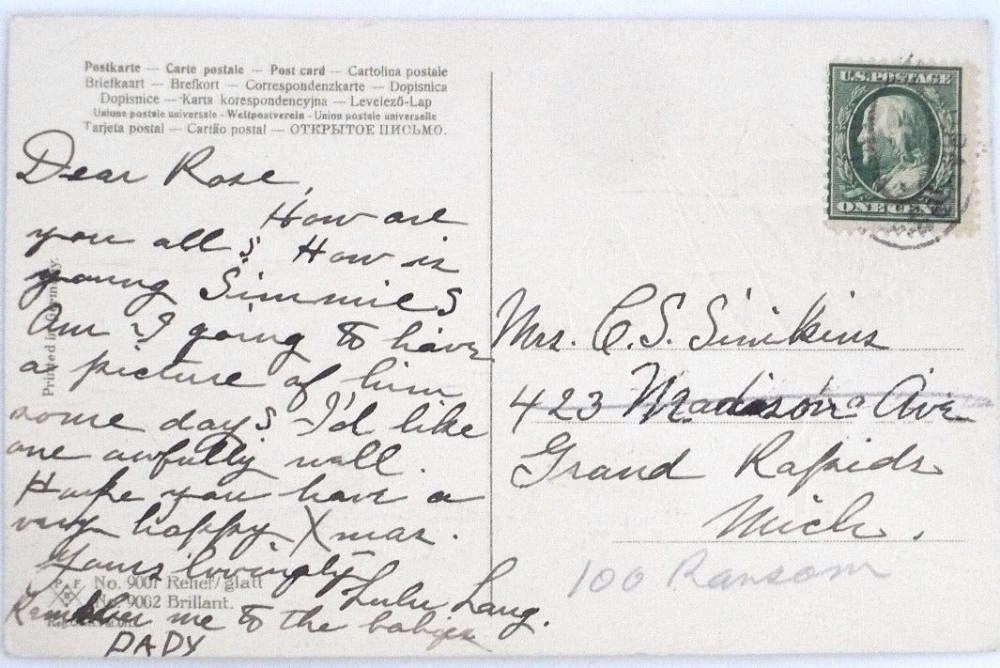 Postkarte — Carte postale — Post card — Cartolina postale
Briefkaart — Brefkort — Correspondenzkarte — Dopisnica
Dopisnice — Karta korespondencyjna — Levelező-Lap
Unione postale universale - Weltpostverein - Union postale universelle
Tarjeta postal — Cartão postal — ОТКРЫТОЕ ПИСЬМО.
Dear Rose,
How are
you all? How is
young Simmie?
Am I going to have
a picture of him
some day? I'd like
one awfully well.
Hope you have a
very happy Xmas.
Yours lovingly
Lulu Lang.
Remember me to the babies
DADY
Printed in Germany.
P.F.
No. 9001 Relief/glatt
No. 9002 Brillant.
U.S. POSTAGE
ONE CENT
Mrs. C. S. Simkins
423 Madison Ave
Grand Rapids
Mich.
100 Ransom